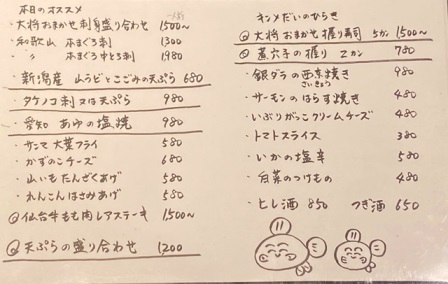 本日のオススメ
大将おまかせ刺身盛り合わせ 1500〜
・和歌山 本まぐろ刺 1300
〃 本まぐろ中とろ刺 1980
・新潟産 山うどとこごみの天ぷら 680
・タケノコ刺又は天ぷら 980
・愛知 あゆの塩焼 980
・サンマ大葉フライ 580
・かずのこチーズ 680
・山いもたんざくあげ 580
・れんこんはさみあげ 580
仙台牛もも肉レアステーキ 1500〜
天ぷらの盛り合わせ 1200
キンメだいのひらき
大将おまかせ握り寿司 5カン 1500〜
煮穴子の握り 2カン 780
・銀ダラの西京焼き 980
さいきょう
・サーモンのはらす焼き 480
・いぶりがっこクリームチーズ 480
・トマトスライス 380
・いかの塩辛 580
・白菜のつけもの 480
・ヒレ酒 850 つぎ酒 650